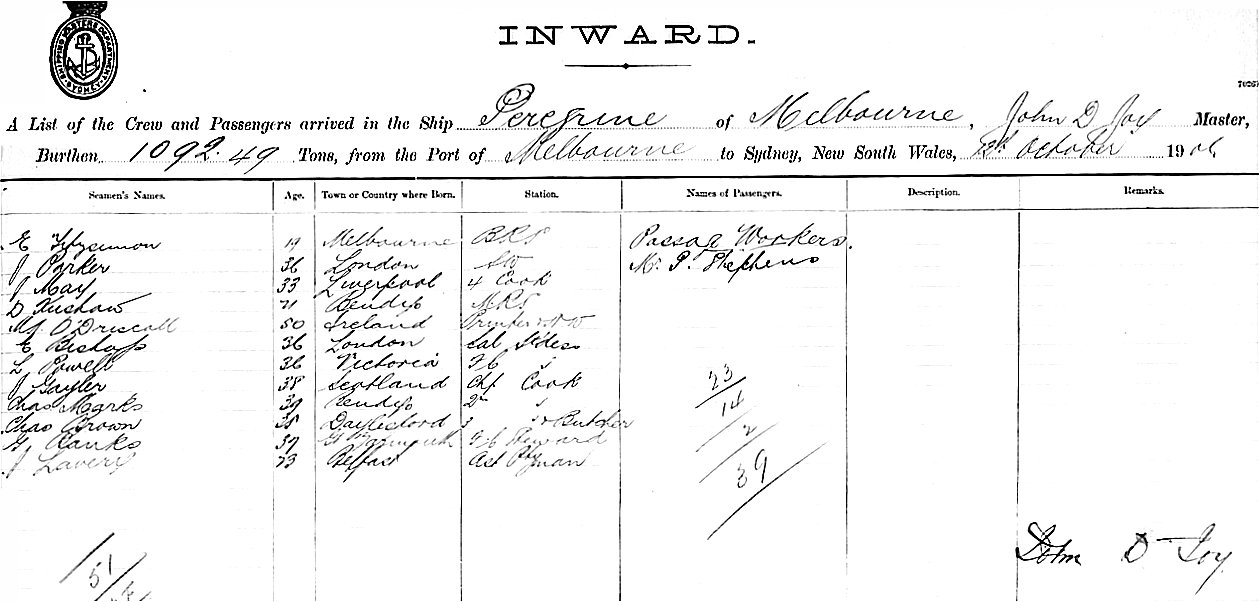 SHIPPING MASTERS DEPARTMENT SYDNEY
INWARD.
A List of the Crew and Passengers arrived in the Ship Peregrine of Melbourne, John D Joy Master,
Burthen 1092.49 Tons, from the Port of Melbourne to Sydney, New South Wales, October 190
Seamen's Names. Age. Town or Country where Born. Station. Names of Passengers. Description. Remarks.
E 19 Melbourne BRS Passage Workers.
J Parker 36 London Mr P. Stephens
J May 33 Liverpool 4 Cook
D 21 Bendigo MRS
M O'Driscoll 50 Ireland Printer
E Bishop 36 London Sal Stdess
L Powell 36 Victoria
J Gayler 38 Scotland Chf Cook 23
Chas Marks 39 Bendigo 2 " 14
Chas Brown 38 Daylesford 3 " & Butcher 2
G Banks 37 Gt Yarmouth Steward
J Lavery 23 Belfast Ast Pyman 39
John D Joy
51